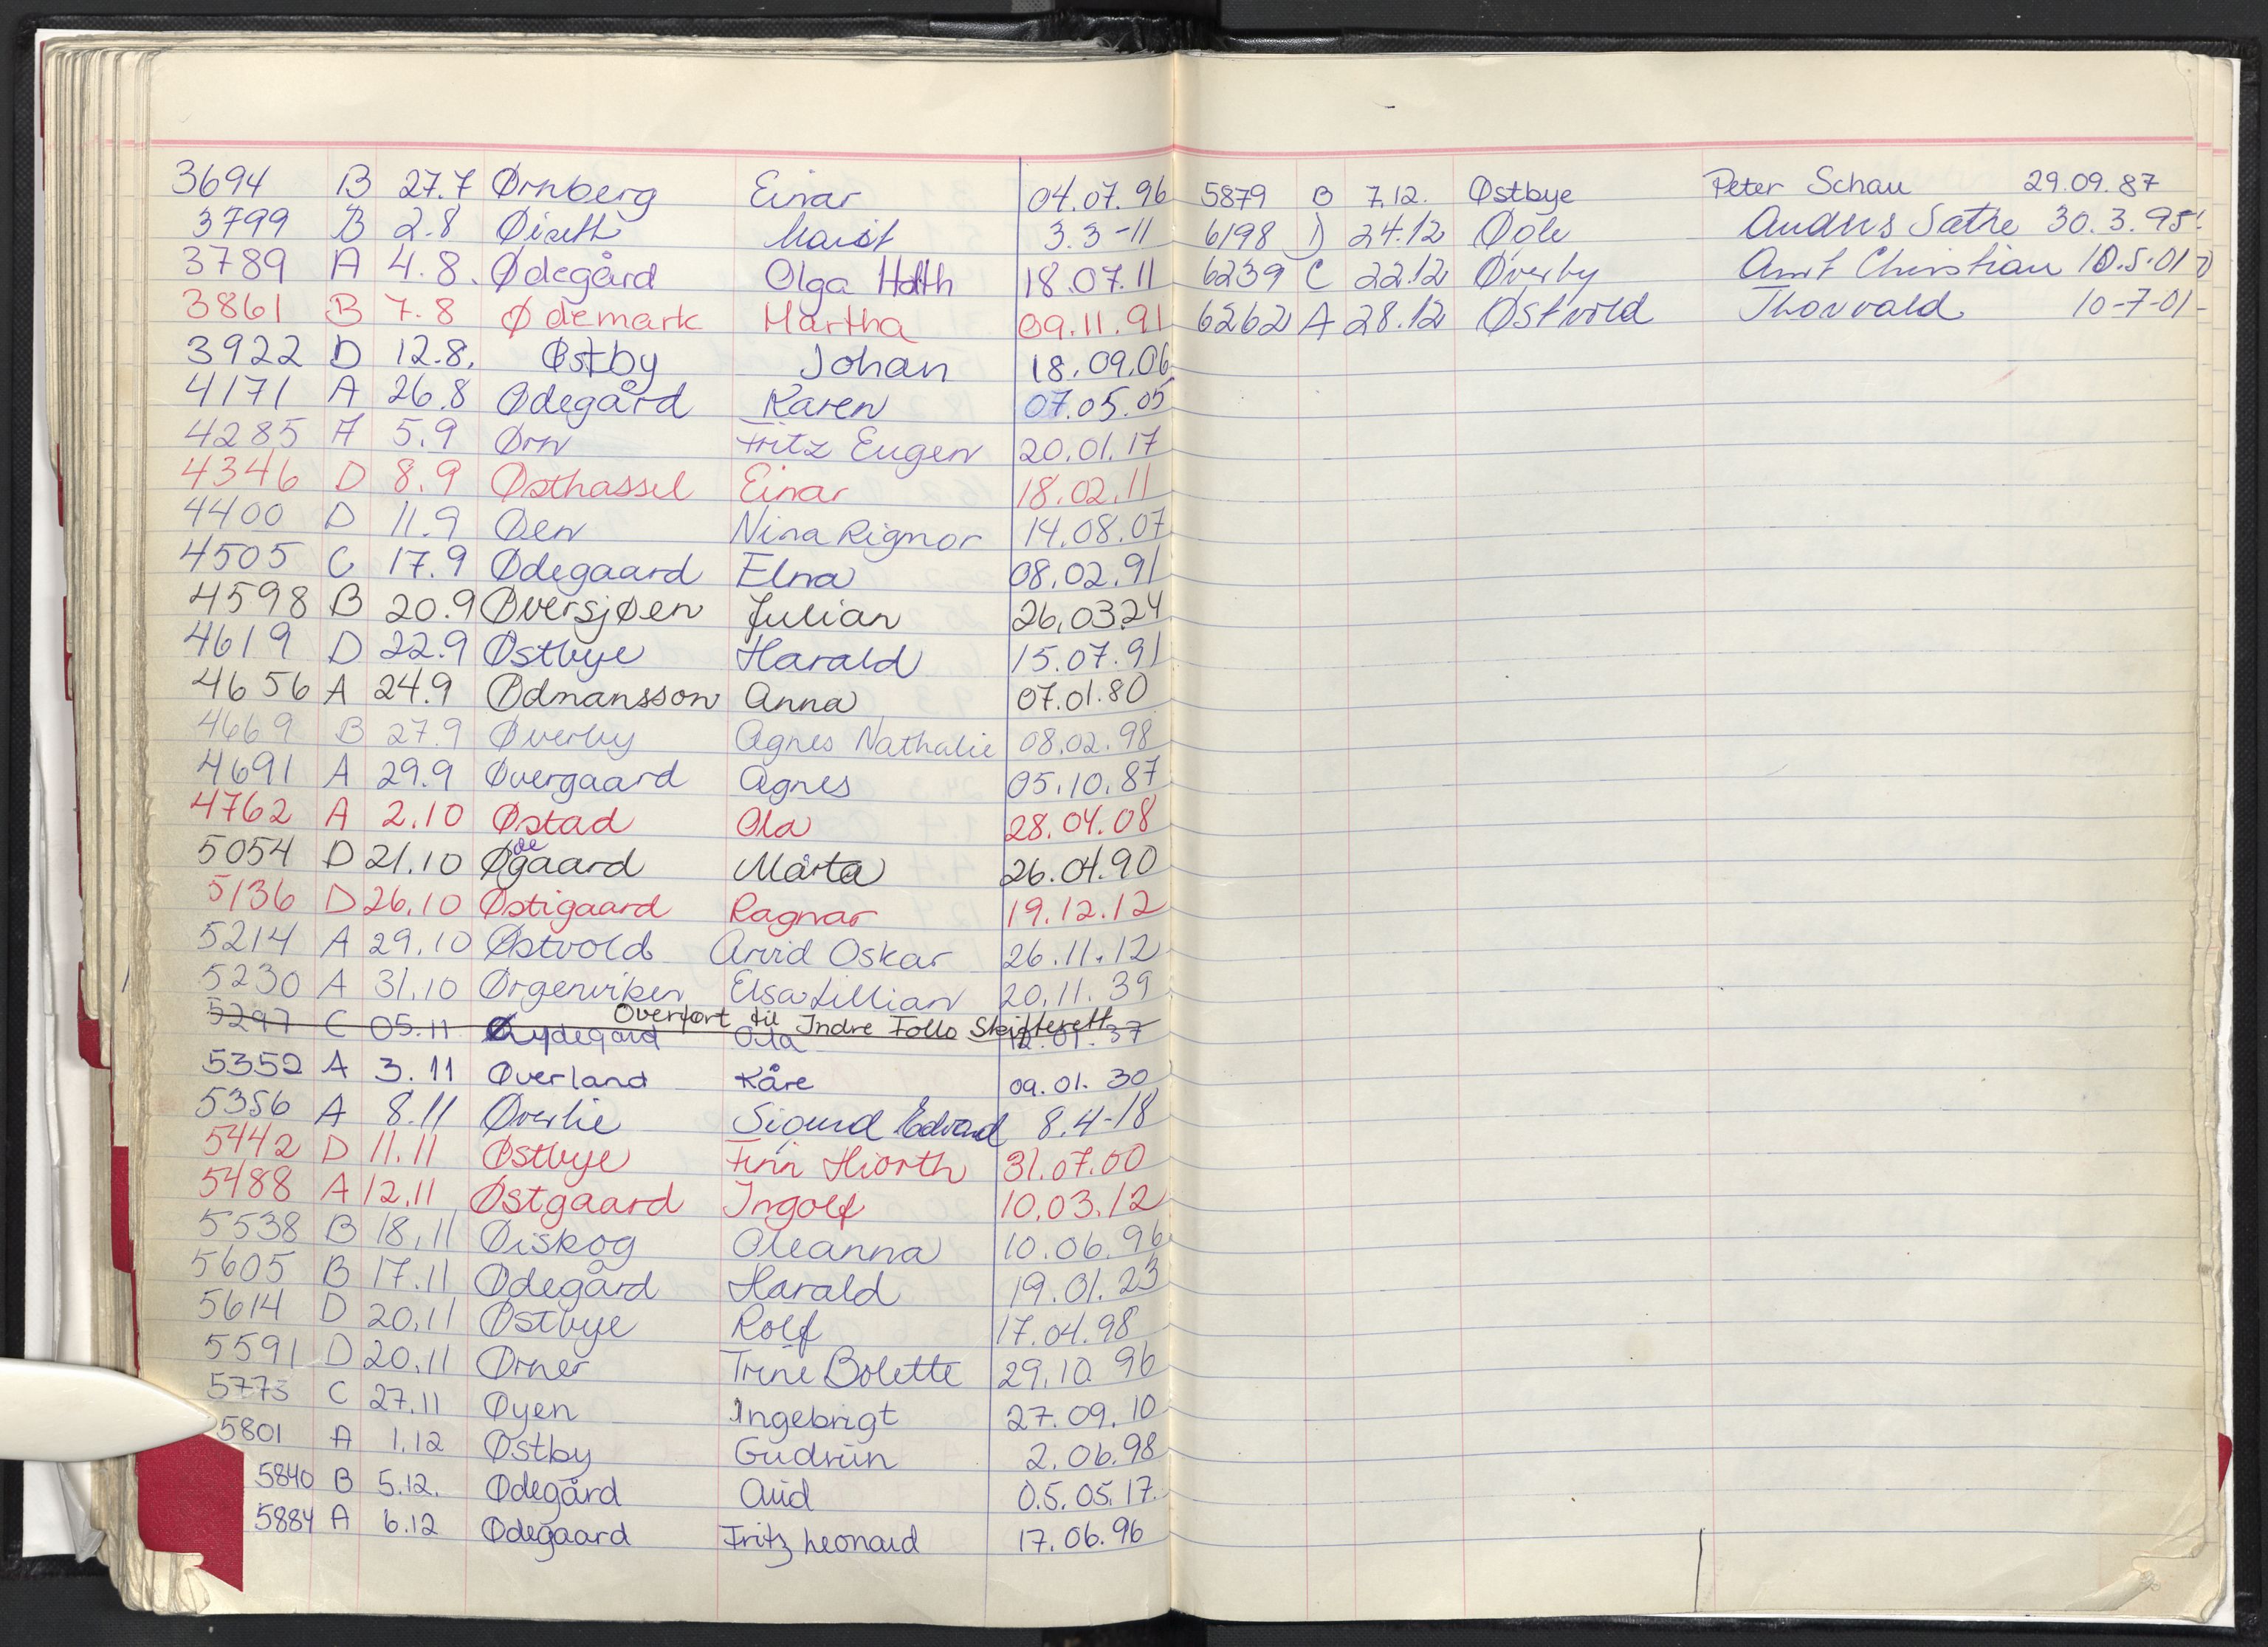 3694 B 27.7 Ørnberg Einar 04.07.96
3799 B 2.8 Øiseth Marit 3.3-11
3789 A 4.8. Ødegård Olga Hoth 18.07.11
3861 B 7.8 Ødemark Martha 09.11.91
3922 D 12.8. Østby Johan 18.09.06
4171 A 26.8 Ødegård Karen 07.05.05
4285 A 5.9 Ørn Fritz Eugen 20.01.17
4346 D 8.9 Østhassel Einar 18.02.11
4400 D 11.9 Øen Nina Rigmor 14.08.07
4505 C 17.9 Ødegaard Elna 08.02.91
4598 B 20.9 Øversjøen Julian 26.03.24
4619 D 22.9 Østbye Harald 15.07.91
4656 A 24.9 Ødmansson Anna 07.01.80
4669 B 27.9 Øverby Agnes Nathalie 08.02.98
4691 A 29.9 Øvergaard Agnes 05.10.87
4762 A 2.10 Østad Ola 28.04.08
5054 D 21.10 Ødegaard Mårta 26.04.90
5136 D 26.10 Østigaard Ragnar 19.12.12
5214 A 29.10 Østvold Arvid Oskar 26.11.12
5230 A 31.10 Ørgenviken Elsa Lillian 20.11.39
Overført til Indre Follo Skifterett
5297 C 05.11 Øydegard Ola 12.01.37
5352 A 3.11 Øverland Kåre 09.01.30
5356 A 8.11 Øverlie Sigurd Edvard 8.4-18
5442 D 11.11 Østbye Finn Hiorth 31.07.00
5488 A 12.11 Østgaard Ingolf 10.03.12
5538 B 18.11 Øiskog Oleanna 10.06.96
5605 B 17.11 Ødegård Harald 19.01.23
5614 D 20.11 Østbye Rolf 17.04.98
5591 D 20.11 Ørner Trine Bolette 29.10.96
5773 C 27.11 Øyen Ingebrigt 27.09.10
5801 A 1.12 Østby Gudrun 2.06.98
5840 B 5.12. Ødegård Aud 0.5.05.17.
5884 A 6.12 Ødegaard Fritz Leonard 17.06.96
5879 B 7.12. Østbye Peter Schau 29.09.87
6198 D 24.12 Anders Sætre 30.3.95
6239 C 22.12 Øverby Arnt Christian 10.5.01
6262 A 28.12 Østvold Thorvald 10-7-01-